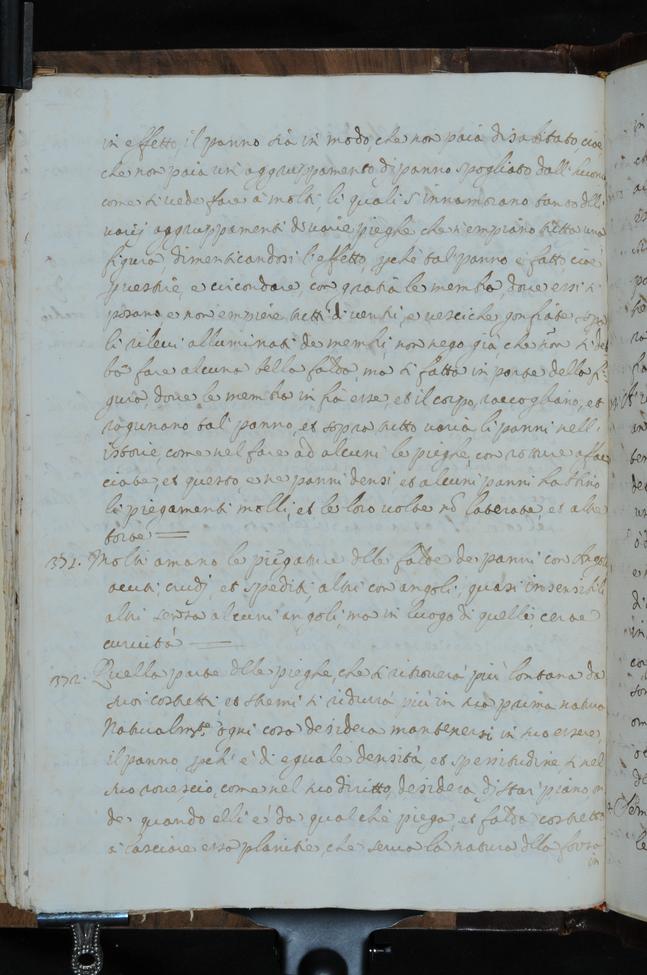 in effetto il panno sia in modo che non paia disabitato cioè
che non paia un' aggruppamento di panno spogliato dall' huomo
come si vede fare à molti, li quali s' innamorano tanto delli
varij aggruppamenti di varie pieghe che n' empiano tutta una
figura, dimenticandosi l' effetto, perche tal panno è fatto, cioè
per vestire, e circondare, con gratia le membra, dove essi si
posano e non empiere tutti di ventri, e vesciche gonfiate sopra
li rilevi alluminati de membri, non nego già, che non si deb
ba fare alcuna bella falda, ma si fatta in parte della fi-
gura, dove le membra in frà esse, et il corpo, raccogliano, et
ragunano tal panno, et sopra tutto varia li panni nell'
istorie, come nel fare ad alcuni le pieghe, con rotture affac
ciate; et questo, e ne panni densi et alcuni panni habbino
li piegamenti molli, et le loro volte nō laterate, et altre
torte =
371. Molti amano le piegature delle falde de panni con Angoli
acuti crudi, et spediti, altri con angoli, quasi insensibili
altri senza alcuni angoli, ma in luogo di quelli, certe
curvità —
372. Quella parte delle pieghe, che si ritroverà più lontana da
suoi costretti, et stremi si ridurrà più in sua prima natura
Naturalmte ogni cosa desidera mantenersi in suo essere,
il panno perche' è di eguale densità, et spessitudine, si nel
suo rovescio, come nel suo diritto, desidera di star piano, on
de quando elli è da qual che piega, et falda costretto
à lasciare essa planitie, che serva la natura della forza
in